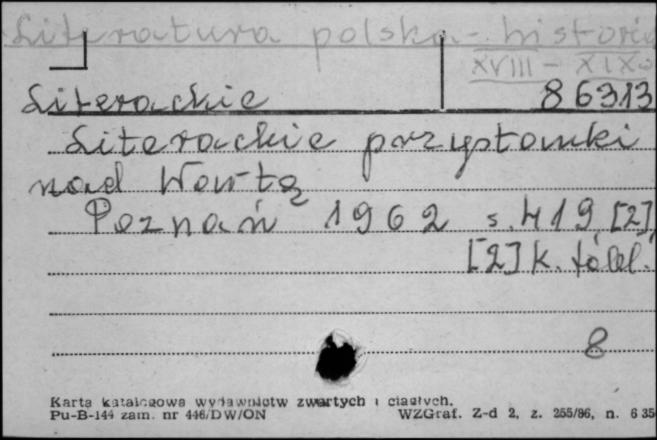 Literatura polska - historia
XVIII - XIX w
Literackie 86313
Literackie przystanki
nad Wartą
Poznań 1962 s. 419 [2]
[2] k. tabl.
8
Karta katalogowa wydawnictw zwartych i ciągłych.
Pu-B-144 zam. nr 446/DW/ON WZGraf. Z-d 2, z. 255/86, n. 6 35